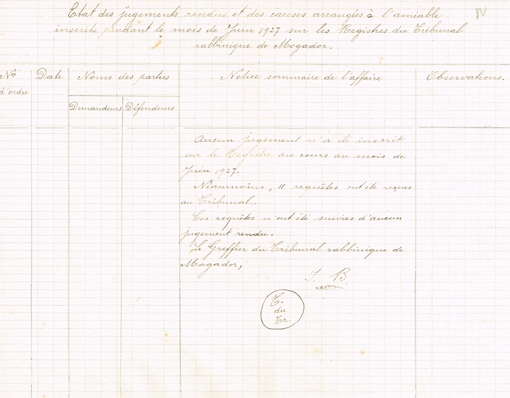 Etat des jugements rendus et des causes arrangées à l'amiable
inscrits pendant le mois de Juin 1927 sur les Registres du Tribunal
rabbinique de Mogador.
IV
Nº
d'ordre
Date
Noms des parties
Demandeurs
Défendeurs
Notice sommaire de l'affaire
Observations.
Aucun jugement n'a été inscrit
sur le Registre au cours du mois de
Juin 1927.
Néanmoins, 11 requêtes ont été reçues
au Tribunal.
Ces requêtes n'ont été suivies d'aucun
jugement rendu.
Le Greffier du Tribunal rabbinique de
Mogador,
J. B
T.
du
Tr